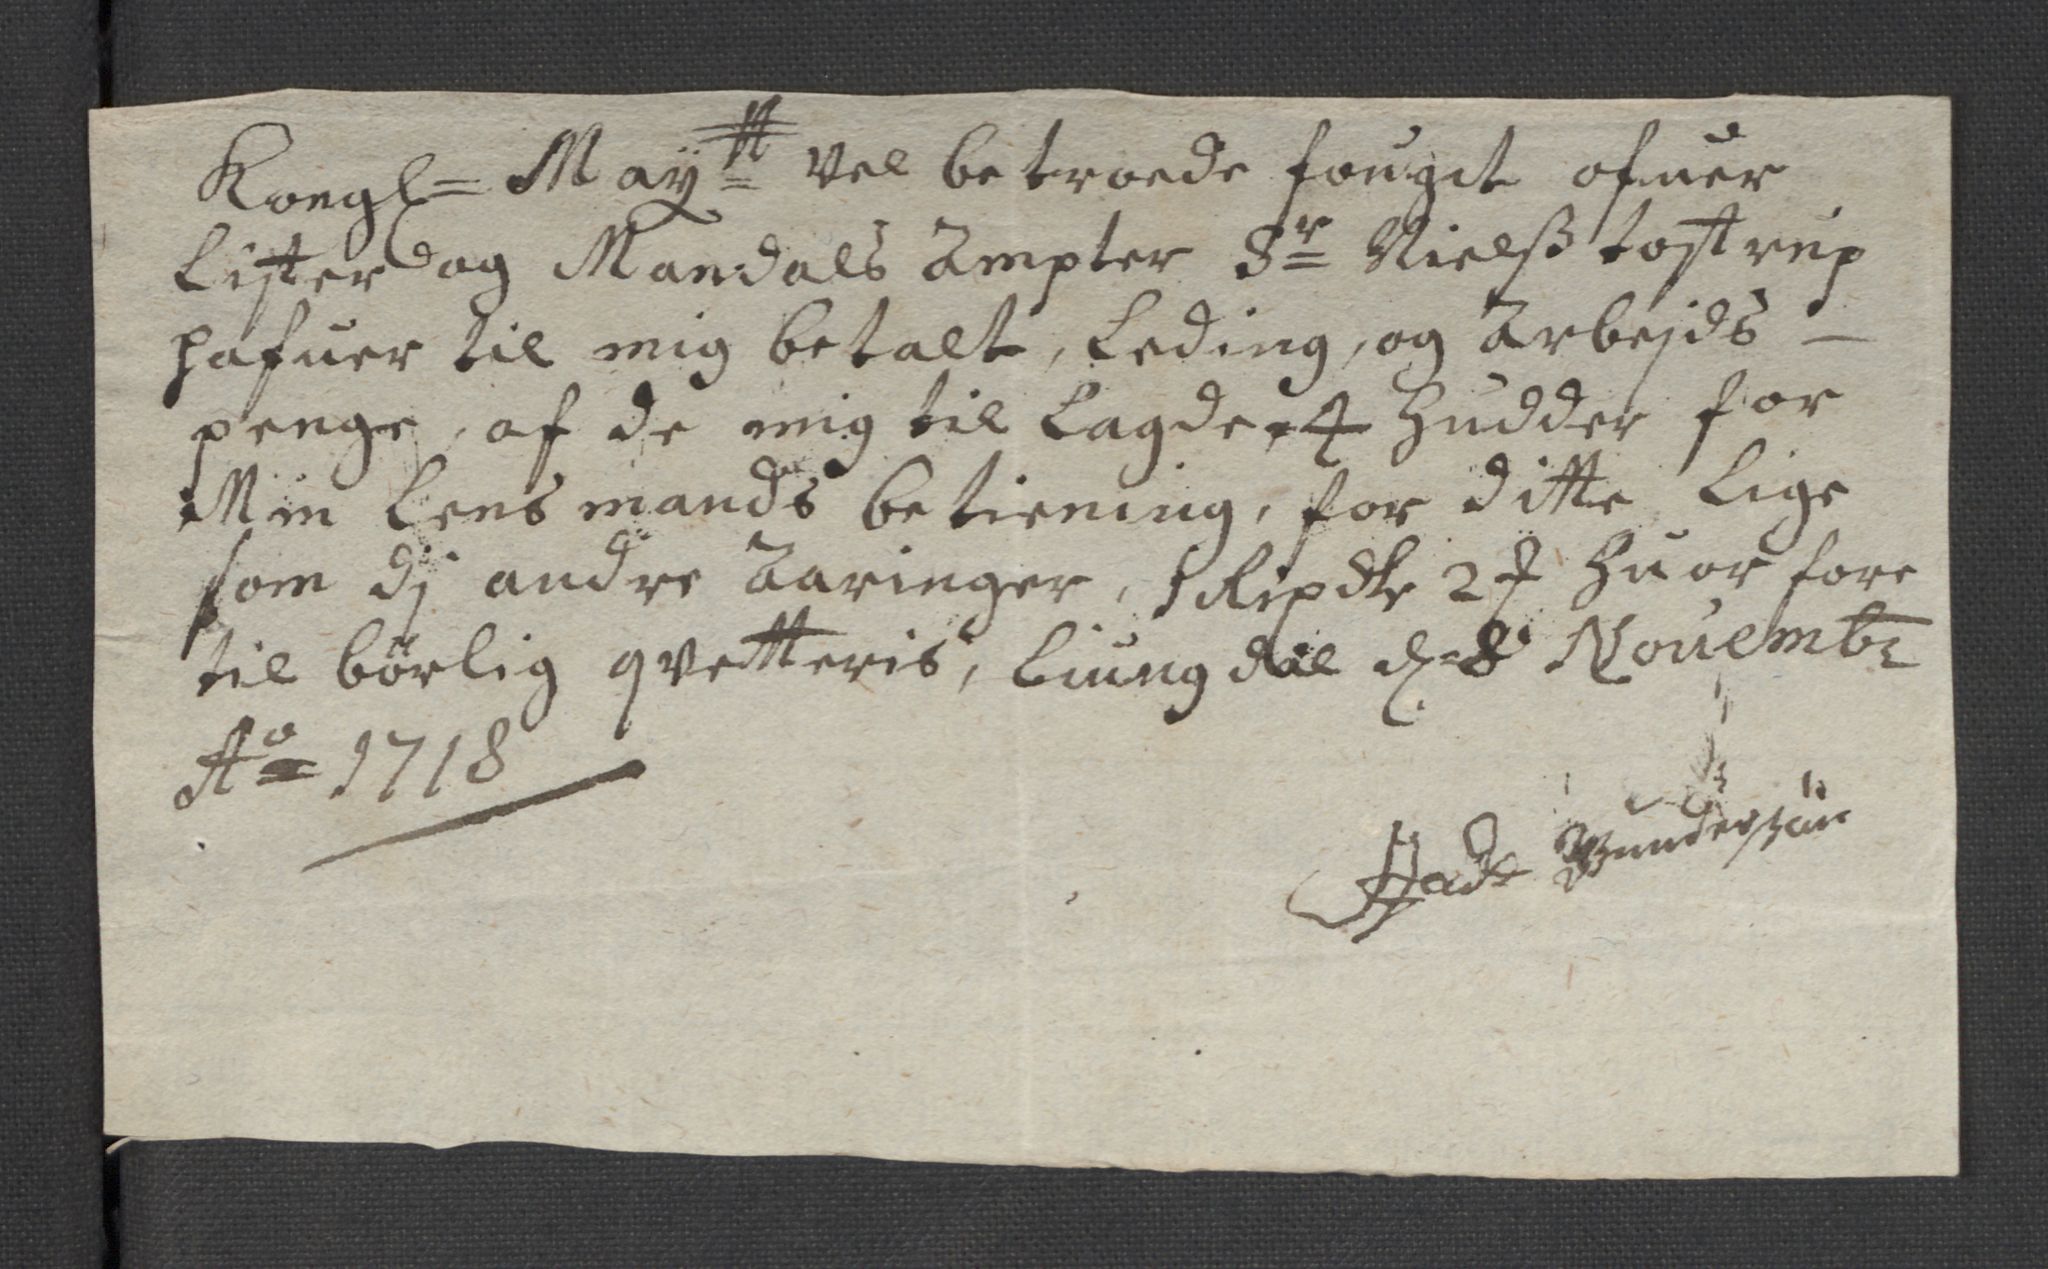 Kongl= Maÿtt vel betroede fougit ofuer
Lister og Mandals Ampter Sr Nielsß tostrup
hafuer til mig betalt, Leding, og Arbejds -
penge, af de mig til Lagde 4 Hudder for
Min Lens mands betiening, for ditte Lige
som dj andre Aaringer, 2 Huor fore
til børlig qvetteris, Liungdal d: 8 Nouembr
Ao 1718
Gundersøn